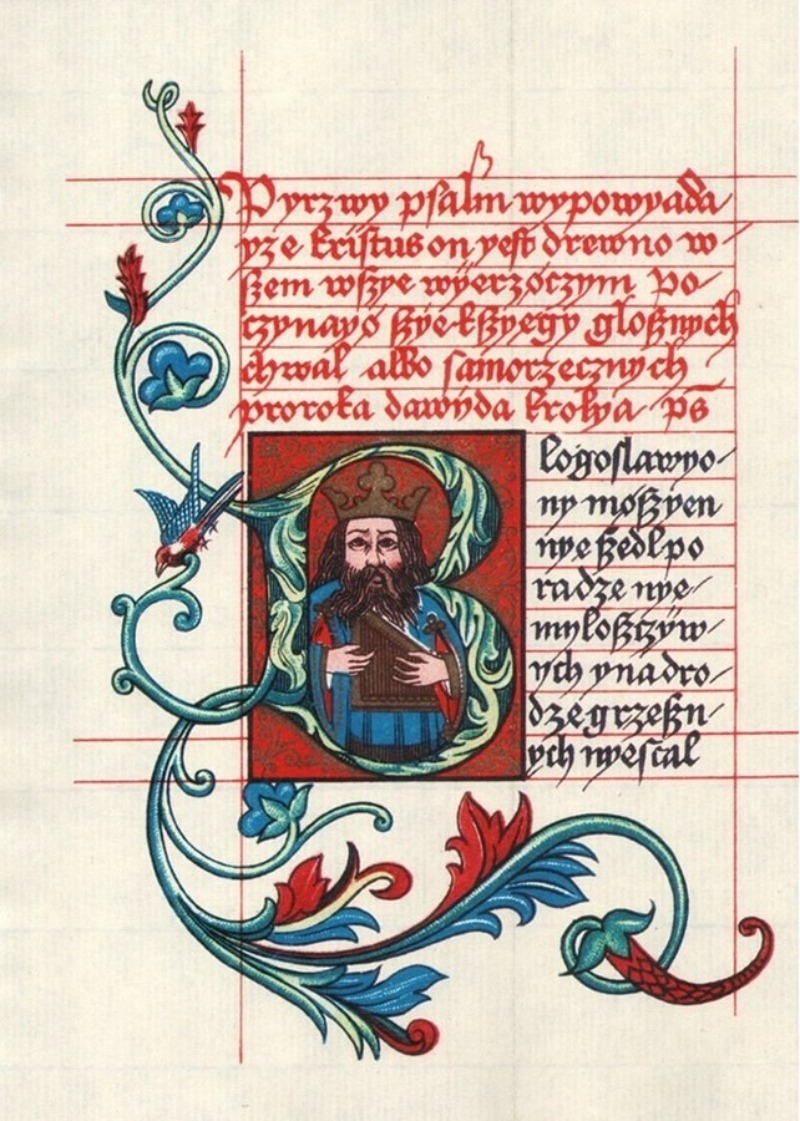 Pyrzwy psalm wypowyada
yze kristus on yest drewno w-
szem wszye wÿerzøczym Po-
czynayø szye kszyegy glosznych
chwal albo samorzecznych
proroka dawyda krolya ps
Bløgoslawyo-
ny møszyen
nye szedl po
radze nye-
myloszczÿw-
ych y na dro-
dze grzeszn-
ych nyestal